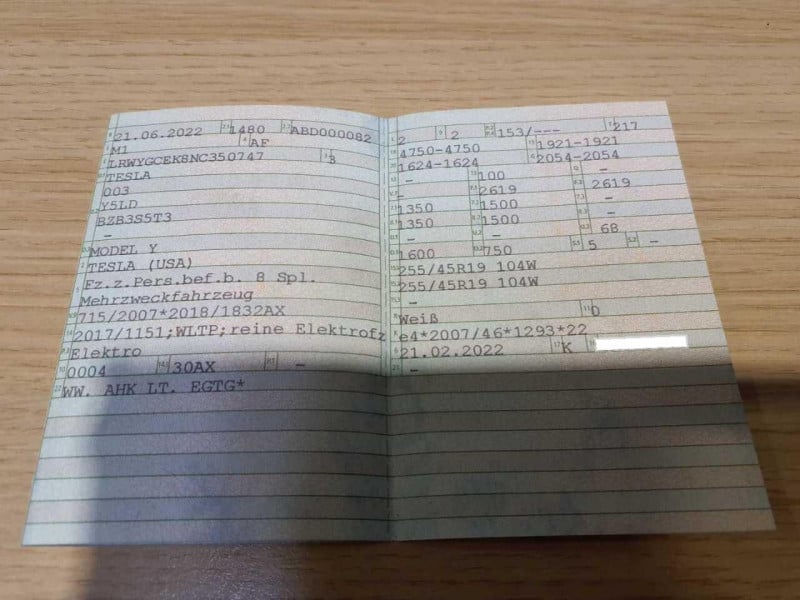 21.06.2022 1480 ABD000082
M1 AF
LRWYGCEK8NC350747 3
TESLA
003
Y5LD
BZB3S5T3
–
MODEL Y
TESLA (USA)
Fz.z.Pers.bef.b. 8 Spl.
Mehrzweckfahrzeug
715/2007*2018/1832AX
2017/1151;WLTP;reine Elektrofz
Elektro
0004 30AX –
WW. AHK LT. EGTG*
2 2 153/--- 217
4750-4750 1921-1921
1624-1624 2054-2054
– 100 –
– 2619 2619
1350 1500 –
1350 1500 –
– – 68
1600 750 5 –
255/45R19 104W
255/45R19 104W
–
Weiß 0
e4*2007/46*1293*22
21.02.2022 K
–